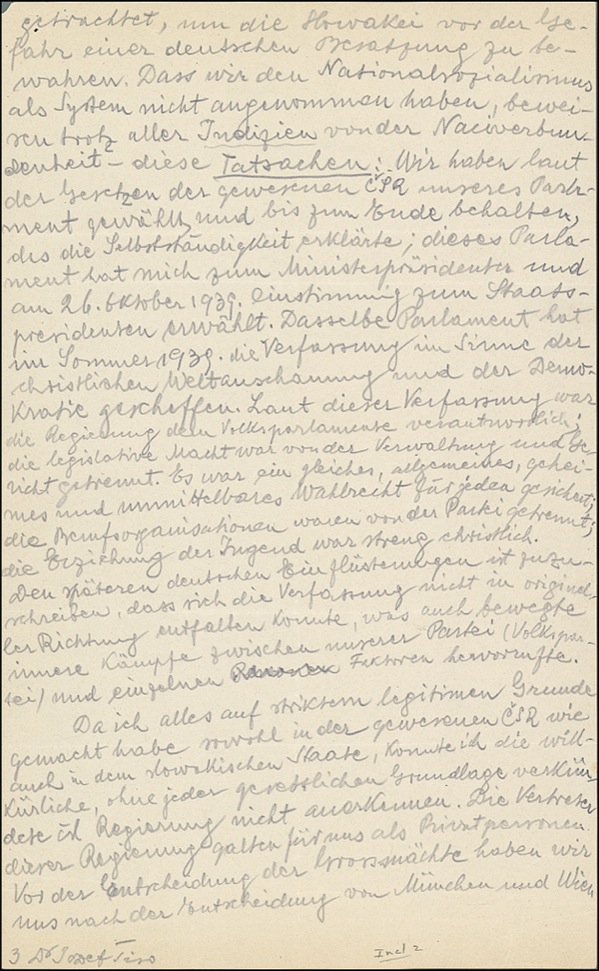 getrachtet, um die Slowakei vor der Ge-
fahr einer deutschen Besatzung zu be-
wahren. Dass wir den Nationalsozialismus
als System nicht angenommen haben, bewei-
sen trotz aller Indizien von der Naciverbun-
denheit - diese Tatsachen: Wir haben laut
der Gesetzen der gewesenen ČSR unseres Parla-
ment gewählt und bis zum Ende behalten,
das die Selbstständigkeit erklärte; dieses Parla-
ment hat mich zum Ministerpräsidenten und
am 26. Oktober 1939. einstimmig zum Staats-
presidenten erwählt. Dasselbe Parlament hat
im Sommer 1939. die Verfassung im Sinne der
christlichen Weltanschauung und der Demo-
kratie geschaffen. Laut dieser Verfassung war
die Regierung dem Volksparlamente verantwortlich;
die legislative Macht war von der Verwaltung und Ge-
richt getrennt. Es war ein gleiches, allgemeines, gehei-
mes und unmittelbares Wahlrecht für jeden gesichert;
die Berufsorganisationen waren von der Partei getrennt;
die Erziehung der Jugend war streng christlich.
Den späteren deutschen Einflüsterungen ist zuzu-
schreiben, dass sich die Verfassung nicht in originel-
ler Richtung entfalten konnte, was auch bewegte
innere Kämpfe zwischen unserer Partei (Volkspar-
tei) und einzelnen Faktoren hervorrufte.
Da ich alles auf striktem legitimen Grunde
gemacht habe sowohl in der gewesenen ČSR wie
auch in dem slowakischen Staate, konnte ich die will-
kürliche, ohne jeder gesetzlichen Grundlage verkün-
dete čsl Regierung nicht anerkennen. Die Vertreter
dieser Regierung galten für uns als Privatpersonen.
Vor der Entscheidung der Grossmächte haben wir
uns nach der Entscheidung von München und Wien
3 Dr Jozef Tiso
Incl 2